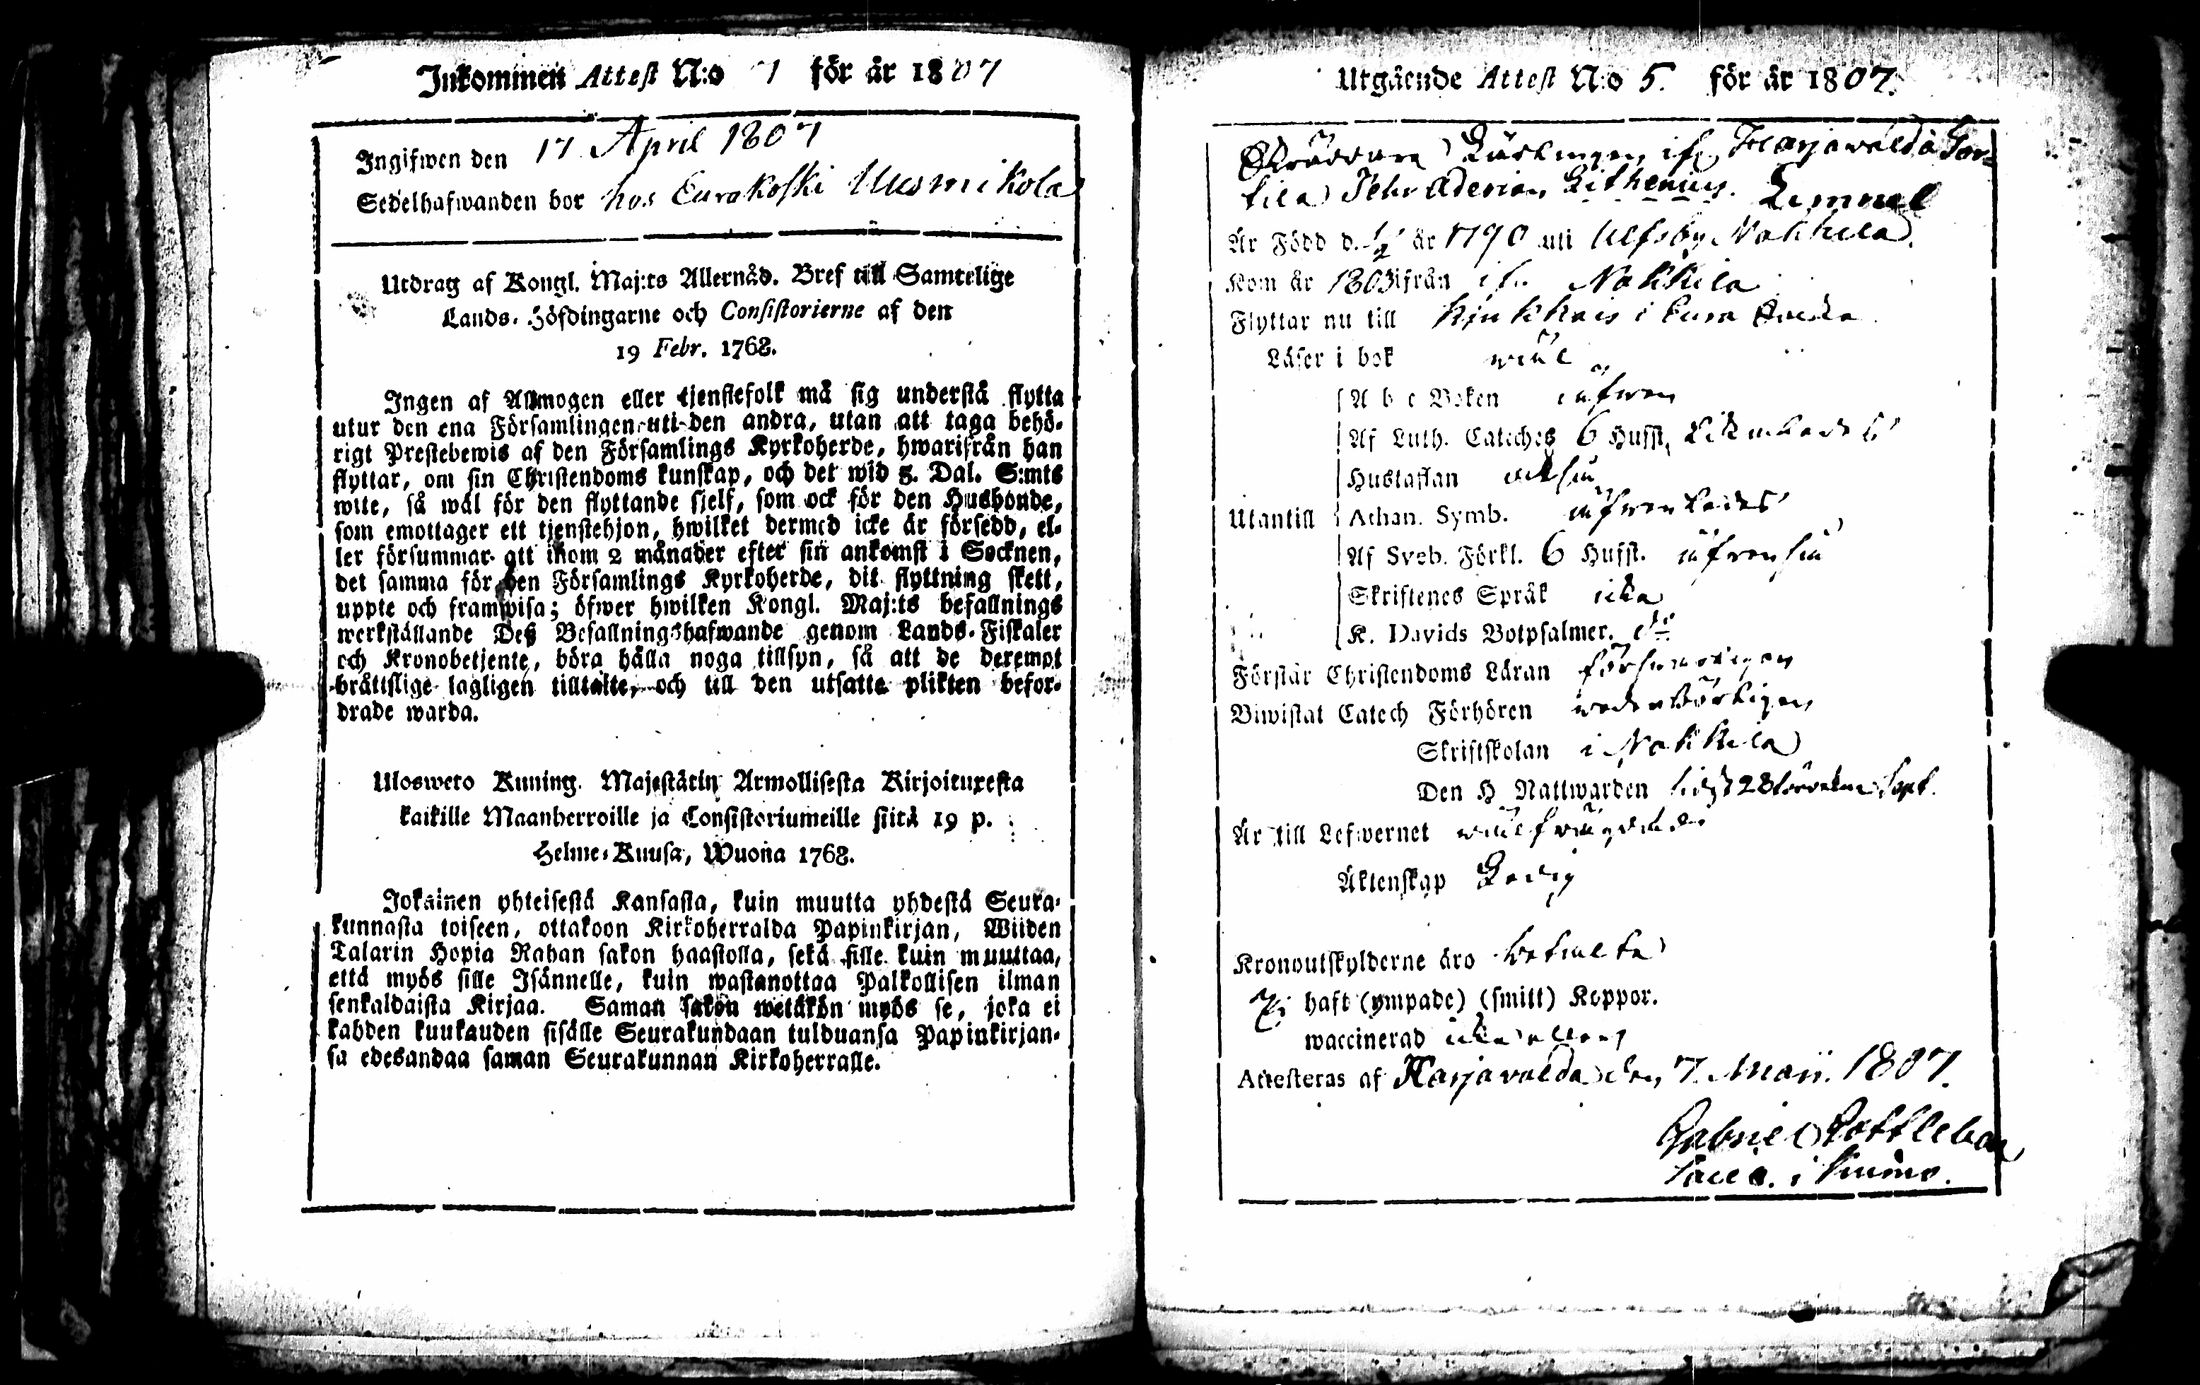 Inkommen Attest N:o 7 för år 1807
Ingifwen den 17 April 1807
Sedelhafwanden bor hos Eurakoski Uusmikola
Utdrag af Kongl. Maj:ts Allernåd. Bref till Samtelige
Lands-Höfdingarne och Consistorierne af den
19 Febr. 1768.
Ingen af Allmogen eller tjenstefolk må sig understå flytta
utur den ena Församlingen uti den andra, utan att taga behö-
rigt Prestebewis af den Församlings Kyrkoherde, hwarifrån han
flyttar, om sin Christendoms kunskap, och det wid 5. Dal. S:mts
wite, så wäl för den flyttande sjelf, som ock för den Husbonde,
som emottager ett tjenstehjon, hwilket dermed icke är försedd, el-
ler försummar att inom 2 månader efter sin ankomst i Socknen,
det samma för den Församlings Kyrkoherde, dit flyttning skett,
uppte och framwisa; öfwer hwilken Kongl. Maj:ts befallnings
werkställande Deß Befallningshafwande genom Lands-Fiskaler
och Kronobetjente, böra hålla noga tillsyn, så att de deremot
bråttslige lagligen tilltalte, och till den utsatte plikten befor-
drade warda.
Ulosweto Kuning. Majestätin Armollisesta Kirjoituxesta
kaikille Maanherroille ja Consistoriumeille siitä 19 p.
Helme-Kuusa, Wuona 1768.
Jokainen yhteisestä Kansasta, kuin muutta yhdestä Seura-
kunnasta toiseen, ottakoon Kirkoherralda Papinkirjan, Wiiden
Talarin Hopia Rahan sakon haastolla, sekä sille kuin muuttaa,
että myös sille Isännelle, kuin wastanottaa Palkollisen ilman
senkaldaista Kirjaa. Saman sakon wetäkön myös se, joka ei
kahden kuukauden sisälle Seurakundaan tulduansa Papinkirjan-
sa edesandaa saman Seurakunnan Kirkoherralle.
Utgående Attest N:o 5. för år 1807.
Skräddare Lärlingen ifr. Harjavalda Tor-
tila Pehr Aderian Lemnel
Är Född d. år 1790 uti Ulfsby Nakkila.
Kom år 1803 ifrån Nakkila
Flyttar nu till Kjukkais i Eura Socken
Läser i bok wäl
A b c Boken äfwen
Af Luth. Cateches 6 Hufst. likaledes
Hustaflan
Utantill Athan. Symb. äfwenledes
Af Sveb. Förkl. 6 Hufst. äfwenså
Skriftenes Språk icke
K. Davids Botpsalmer. d:o
Förstår Christendoms Läran förswarligen
Biwistat Catech Förhören wederbörligen
Skriftskolan i Nakkila
Den H. Nattwarden sidst 28 Sept.
Är till Lefwernet wälfrägdad
Äktenskap Ledig
Kronoutskylderne äro betalta
Ej haft (ympade) (smitt) Koppor.
waccinerad icke eller
Attesteras af Harjavalda den 7. Maii. 1807.
Gabriel Gottleben
Sacell. i Kumo.